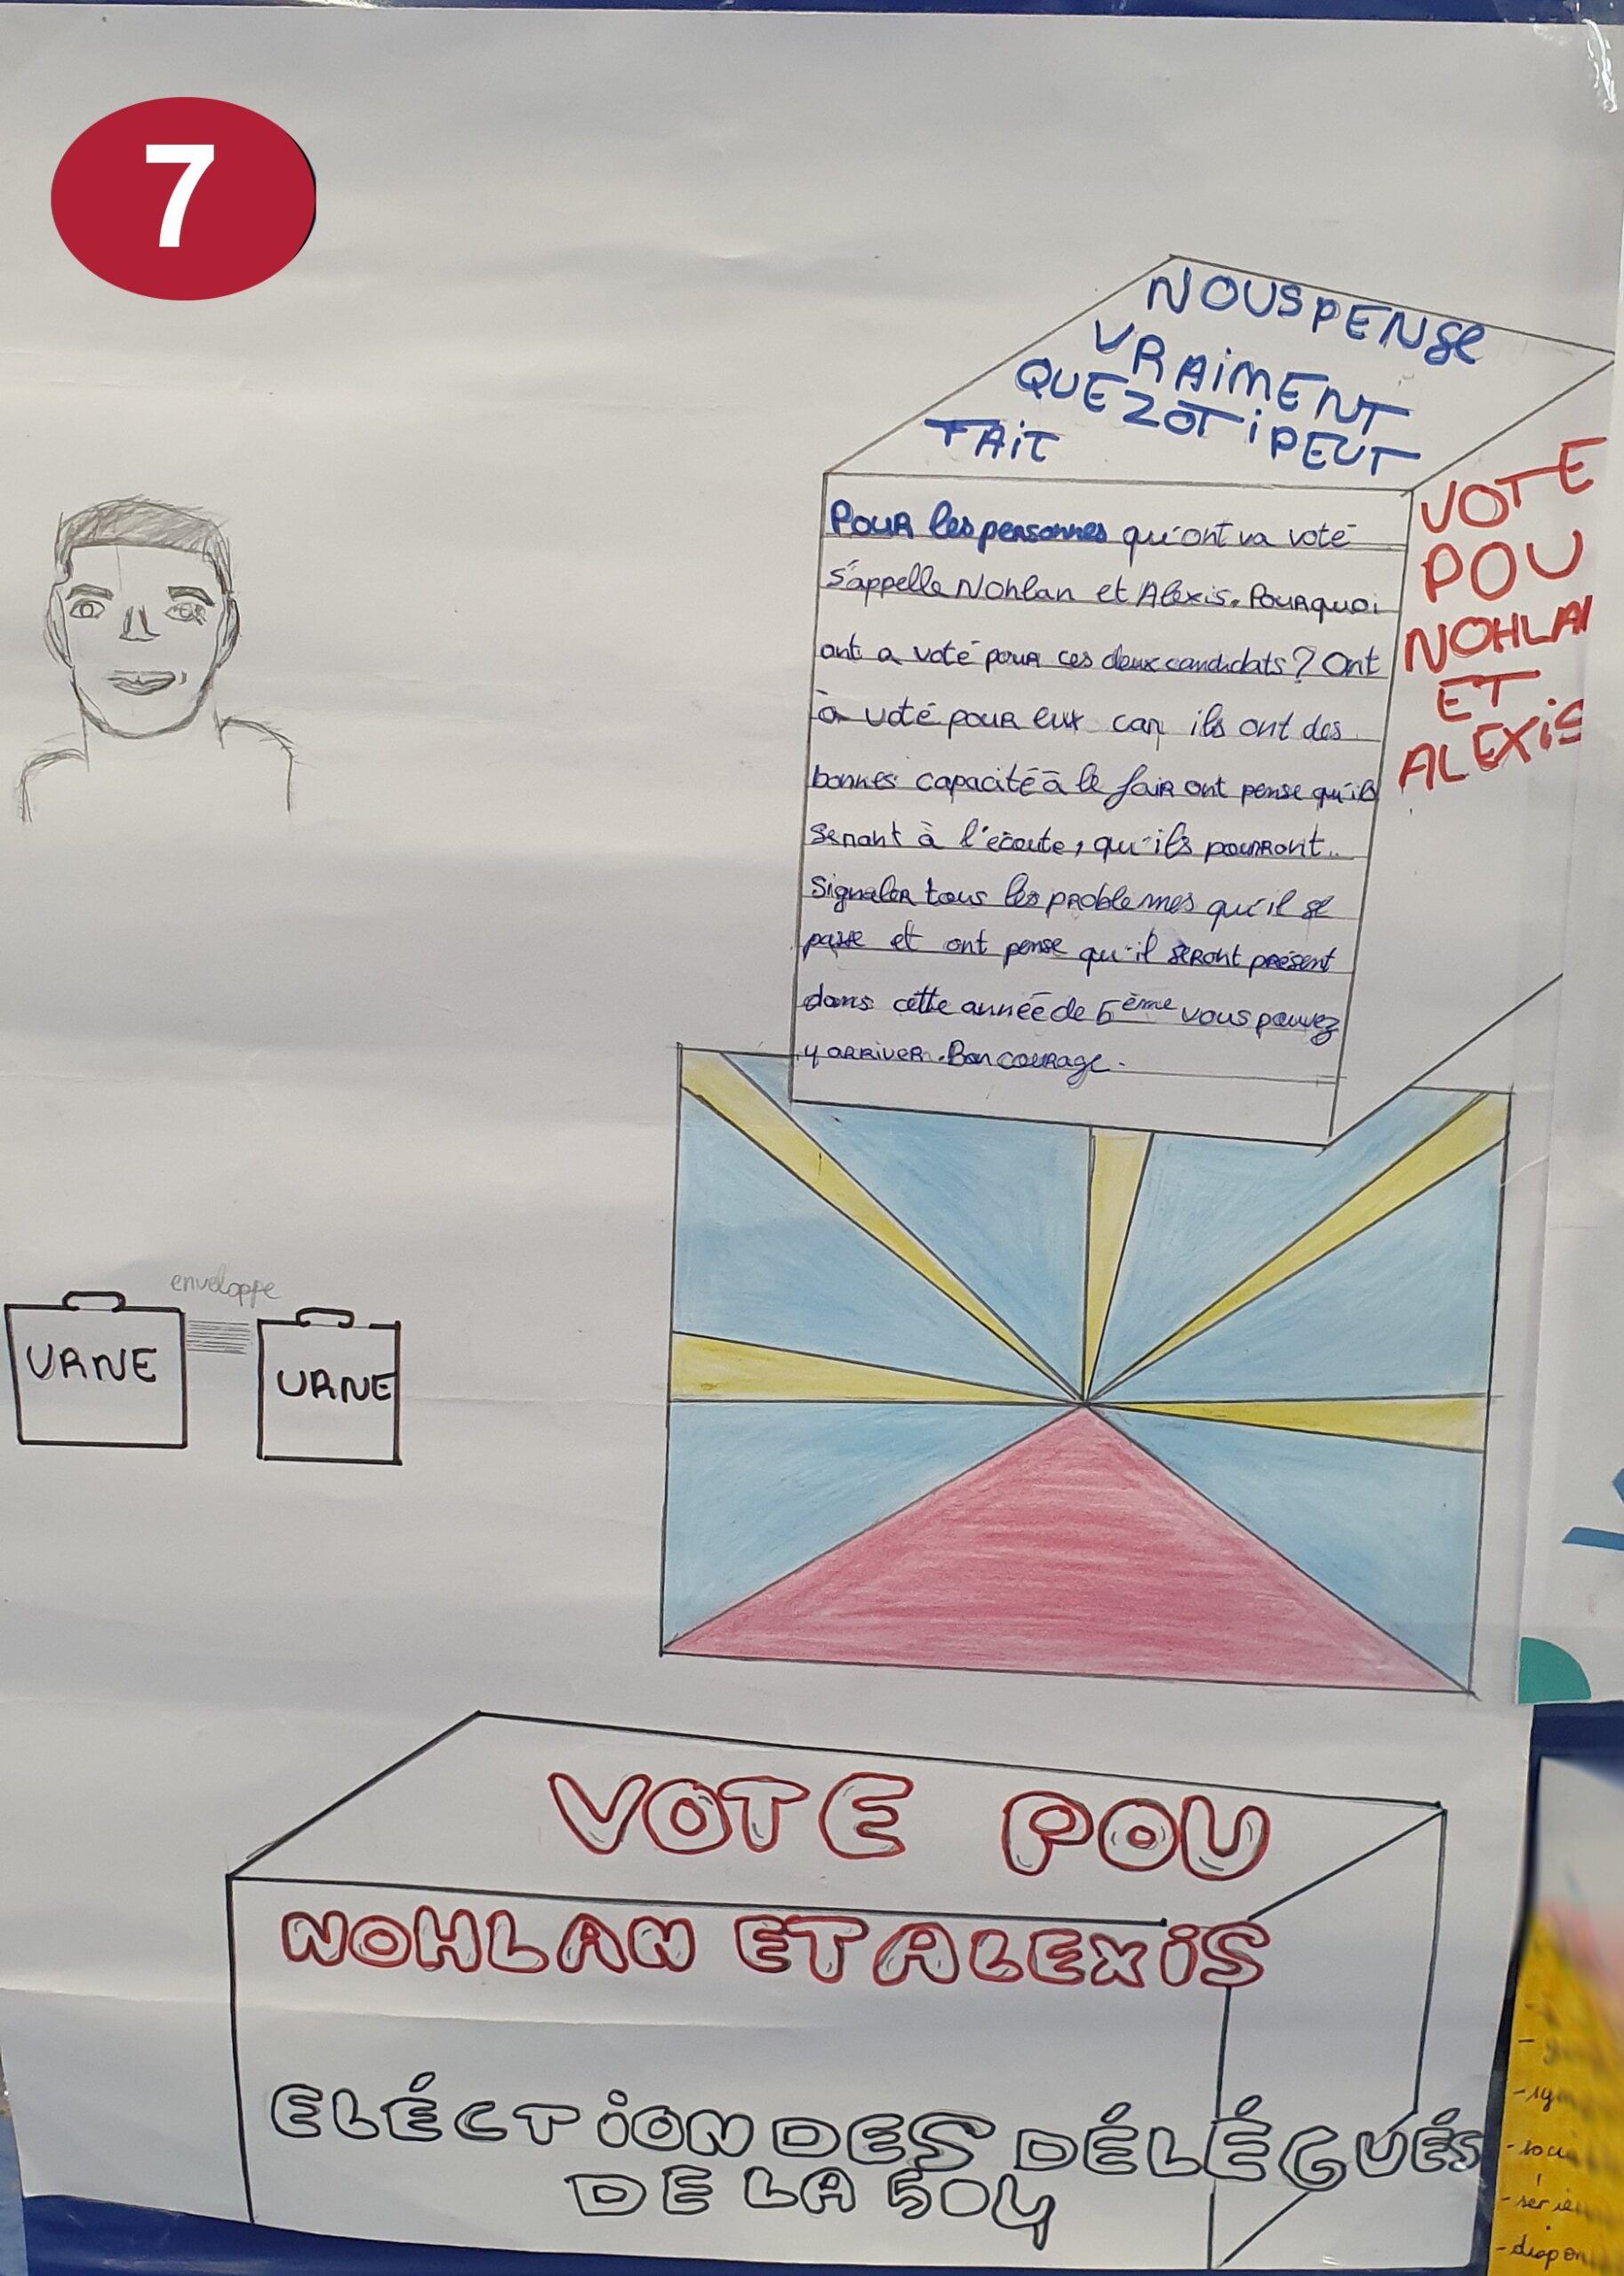 7
NOUS PENSE
VRAiMENT
QUE ZOT i PEUT
FAiT
VOTE
POU
NOHLAN
ET
ALEXiS
POUR les personnes qu'ont va voté
s'appelle Nohlan et Alexis. Pourquoi
ont a voté pour ces deux candidats? Ont
à voté pour eux car ils ont des
bonnes capacité à le fair ont pense qu'ils
seront à l'écoute, qu'ils pourront
signaler tous les problemes qu'il se
passe et ont pense qu'il seront présent
dans cette année de 5ème vous pouvez
y arriver. Bon courage.
enveloppe
URNE
URNE
VOTE POU
NOHLAN ET ALEXiS
ELÉCTiON DES DÉLÉGUÉS
DE LA 504
- soci
- série
- dispon